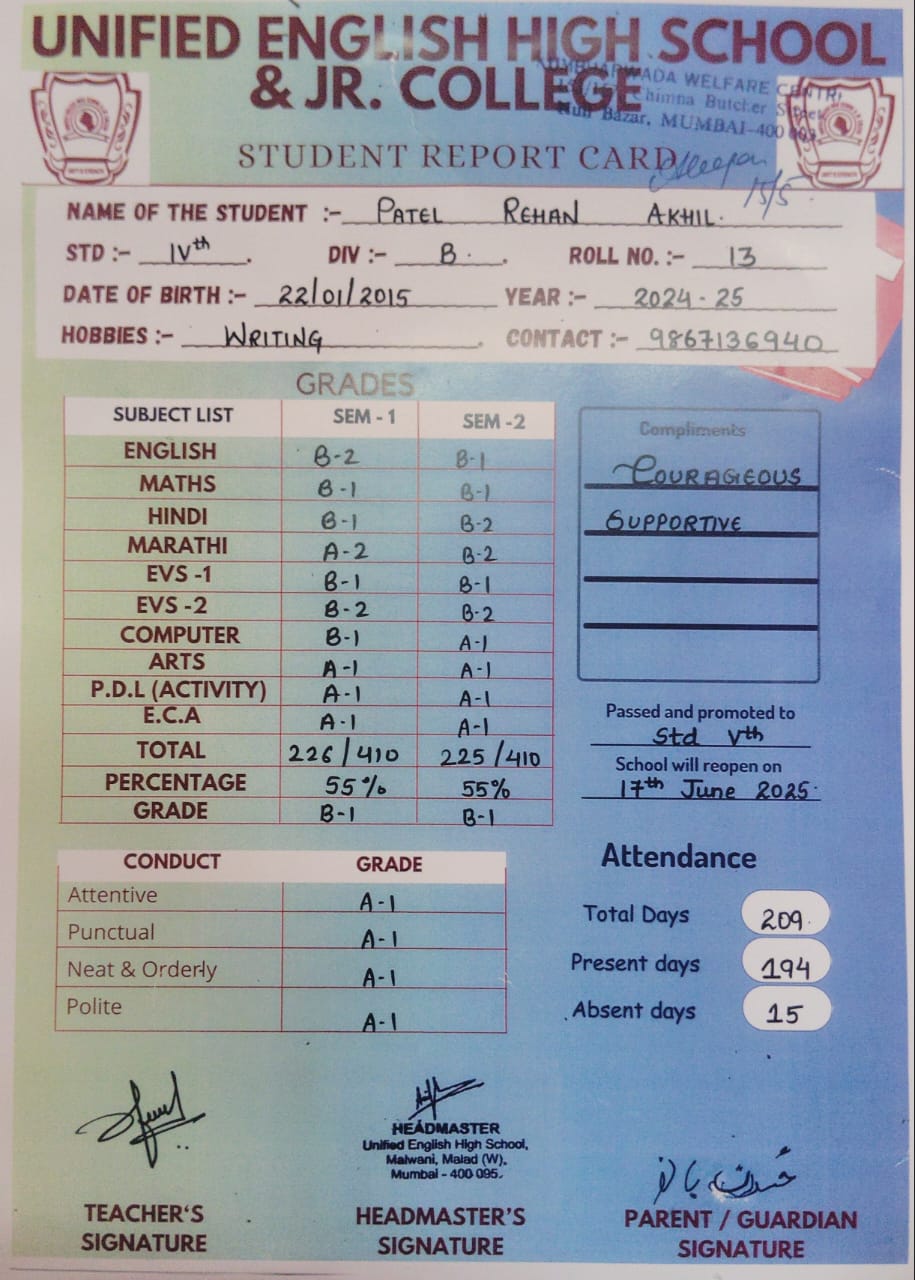 UNIFIED ENGLISH HIGH SCHOOL
& JR. COLLEGE
WADA WELFARE CENTRE
Chimna Butcher Street
Null Bazar, MUMBAI-400 003
STUDENT REPORT CARD
15/5
NAME OF THE STUDENT :- PATEL REHAN AKHIL.
STD :- IVth. DIV :- B. ROLL NO. :- 13
DATE OF BIRTH :- 22/01/2015 YEAR :- 2024-25
HOBBIES :- WRITING. CONTACT :- 9867136940
GRADES
SUBJECT LIST SEM - 1 SEM -2
ENGLISH B-2 B-1
MATHS B-1 B-1
HINDI B-1 B-2
MARATHI A-2 B-2
EVS -1 B-1 B-1
EVS -2 B-2 B-2
COMPUTER B-1 A-1
ARTS A-1 A-1
P.D.L (ACTIVITY) A-1 A-1
E.C.A A-1 A-1
TOTAL 226/410 225/410
PERCENTAGE 55% 55%
GRADE B-1 B-1
Compliments
COURAGEOUS
SUPPORTIVE
Passed and promoted to
Std Vth
School will reopen on
17th June 2025.
CONDUCT GRADE
Attentive A-1
Punctual A-1
Neat & Orderly A-1
Polite A-1
Attendance
Total Days 209.
Present days 194
Absent days 15
HEADMASTER
Unified English High School,
Malwani, Malad (W),
Mumbai - 400 095.
TEACHER'S
SIGNATURE
HEADMASTER'S
SIGNATURE
PARENT / GUARDIAN
SIGNATURE